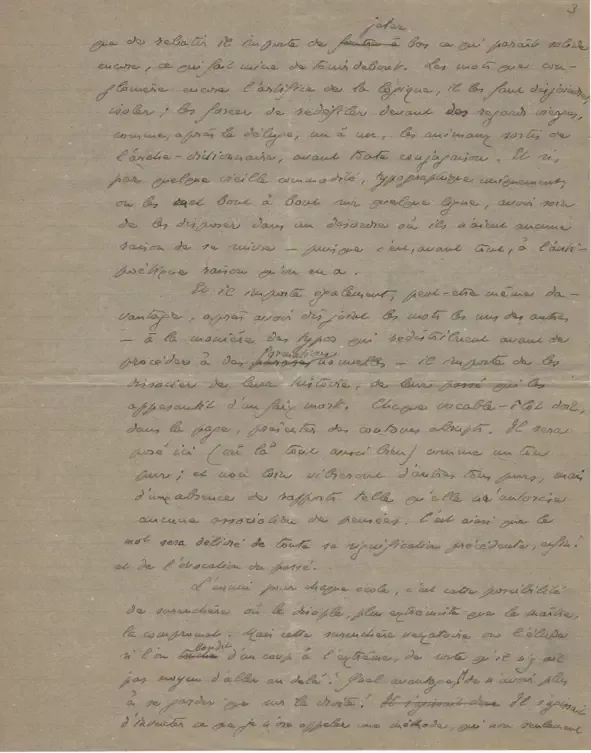 3
jeter
que de rebatir il importe de foutre à bas ce qui paraît solide
encore, ce qui fait mine de tenir debout. Les mots que con-
glomère encore l'artifice de la logique, il les faut disjoindre,
isoler ; les forcer de redéfiler devant des regards vierges,
comme, après le déluge, un à un, les animaux sortis de
l'arche-dictionnaire, avant toute conjugaison. Et si,
par quelque vieille commodité, typographique uniquement,
on les met bout à bout sur quelque ligne, avoir soin
de les disposer dans un désordre où ils n'aient aucune
raison de se suivre – puisque c'est, avant tout, à l'anti-
poétique raison qu'on en a.
Et il importe également, peut-être même da-
vantage, après avoir disjoint les mots les uns des autres
– à la manière des typos qui redistribuent avant de
procéder à des formations nouvelles – il importe de les
dissocier de leur histoire, de leur passé qui les
appesantit d'un faix mort. Chaque vocable-îlot doit,
dans la page, présenter des contours abrupts. Il sera
posé ici (ou là tout aussi bien) comme un ton
pur ; et non loin vibreront d'autres tons purs, mais
d'une absence de rapports telle qu'elle n'autorise
aucune association de pensées. C'est ainsi que le
mot sera délivré de toute sa signification précédente, enfin !
et de l'évocation du passé.
L'ennui pour chaque école, c'est cette possibilité
de surenchère où le disciple, plus extrémiste que le maître,
le compromet. Mais cette surenchère vexatoire on l'élude
si l'on bondit d'un coup à l'extrême, de sorte qu'il n'y ait
pas moyen d'aller au delà ! Quel avantage, de n'avoir plus
à se garder que sur la droite ! Il s'agissait donc Il s'agissait
d'inventer ce que je n'ose appeler une méthode, qui non seulement